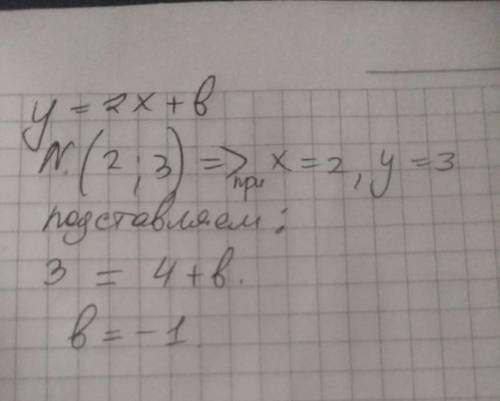 y = 2x + b
N. (2; 3) => при x = 2, y = 3
подставляем:
3 = 4 + b.
b = -1